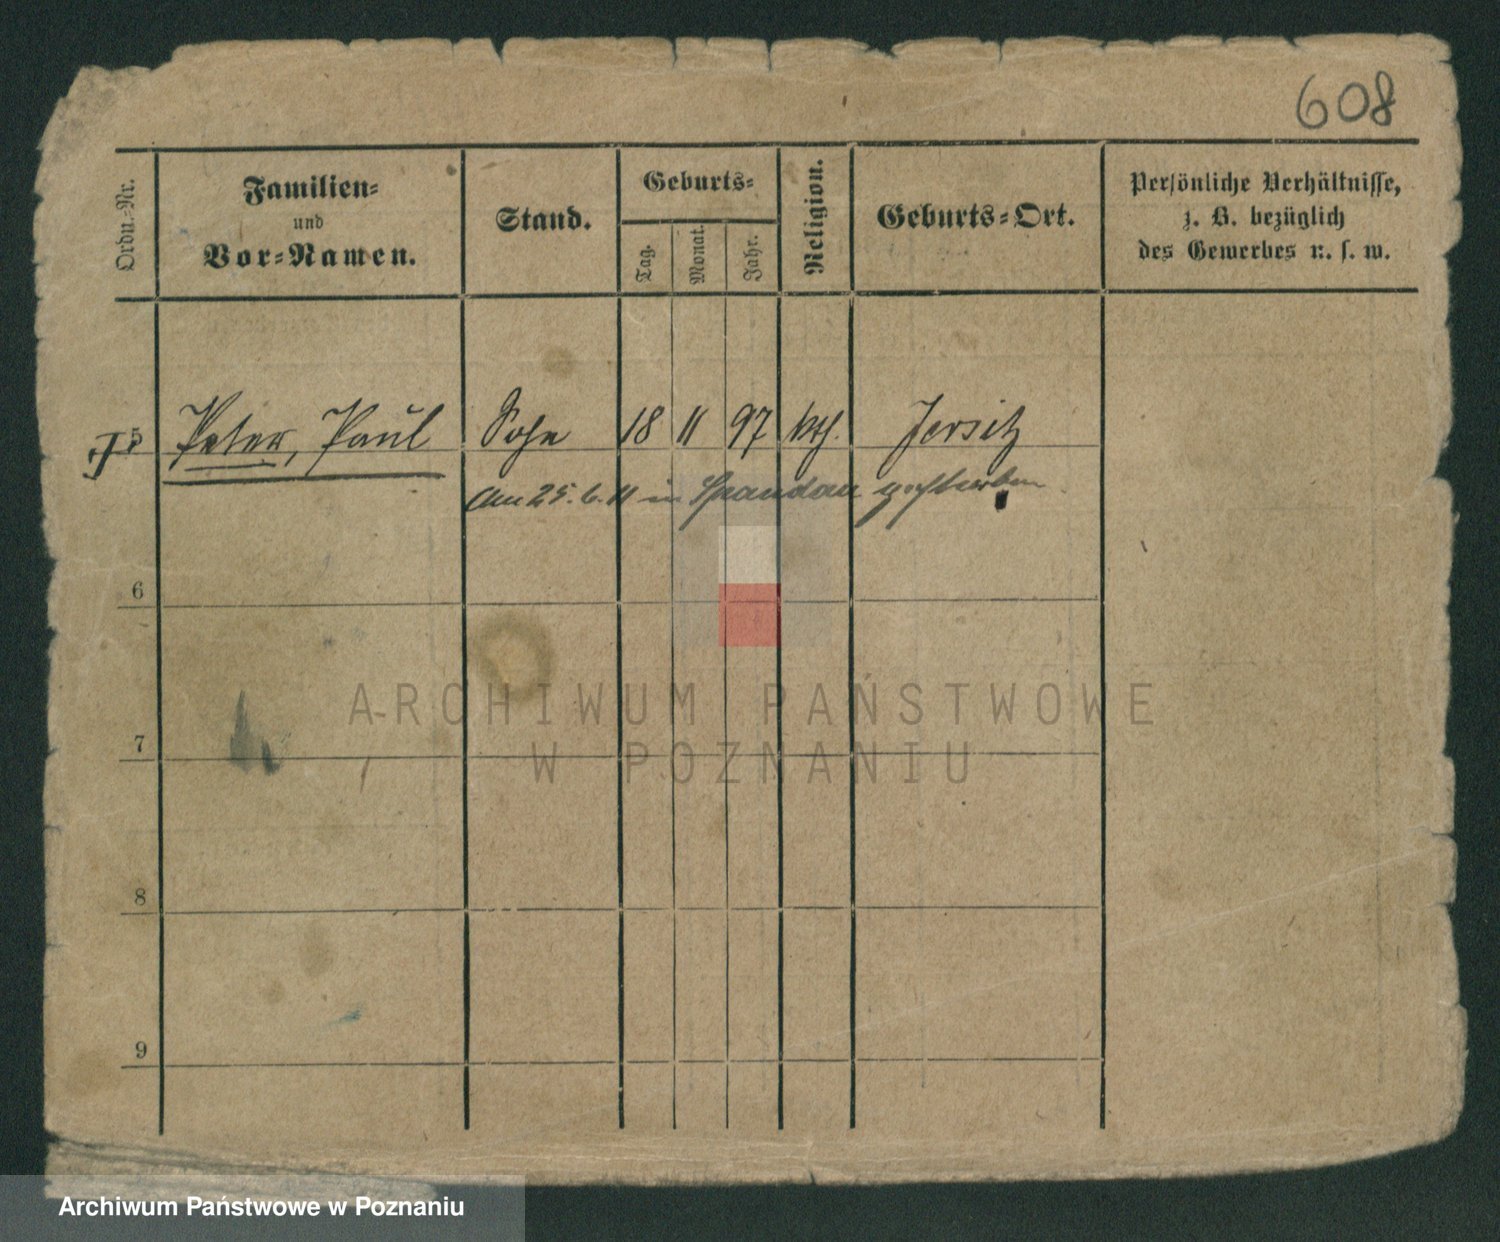 608
Ordn.-Nr.
Familien-
und
Vor-Namen.
Stand.
Geburts-
Tag.
Monat.
Jahr.
Religion.
Geburts-Ort.
Persönliche Verhältnisse,
z. B. bezüglich
des Gewerbes u. s. w.
5 Peter, Paul Sohn 18 11 97 kth. Jersitz
Am 25. 6. 11 in Spandau gestorben
6
7
8
9
ARCHIWUM PAŃSTWOWE
W POZNANIU
Archiwum Państwowe w Poznaniu